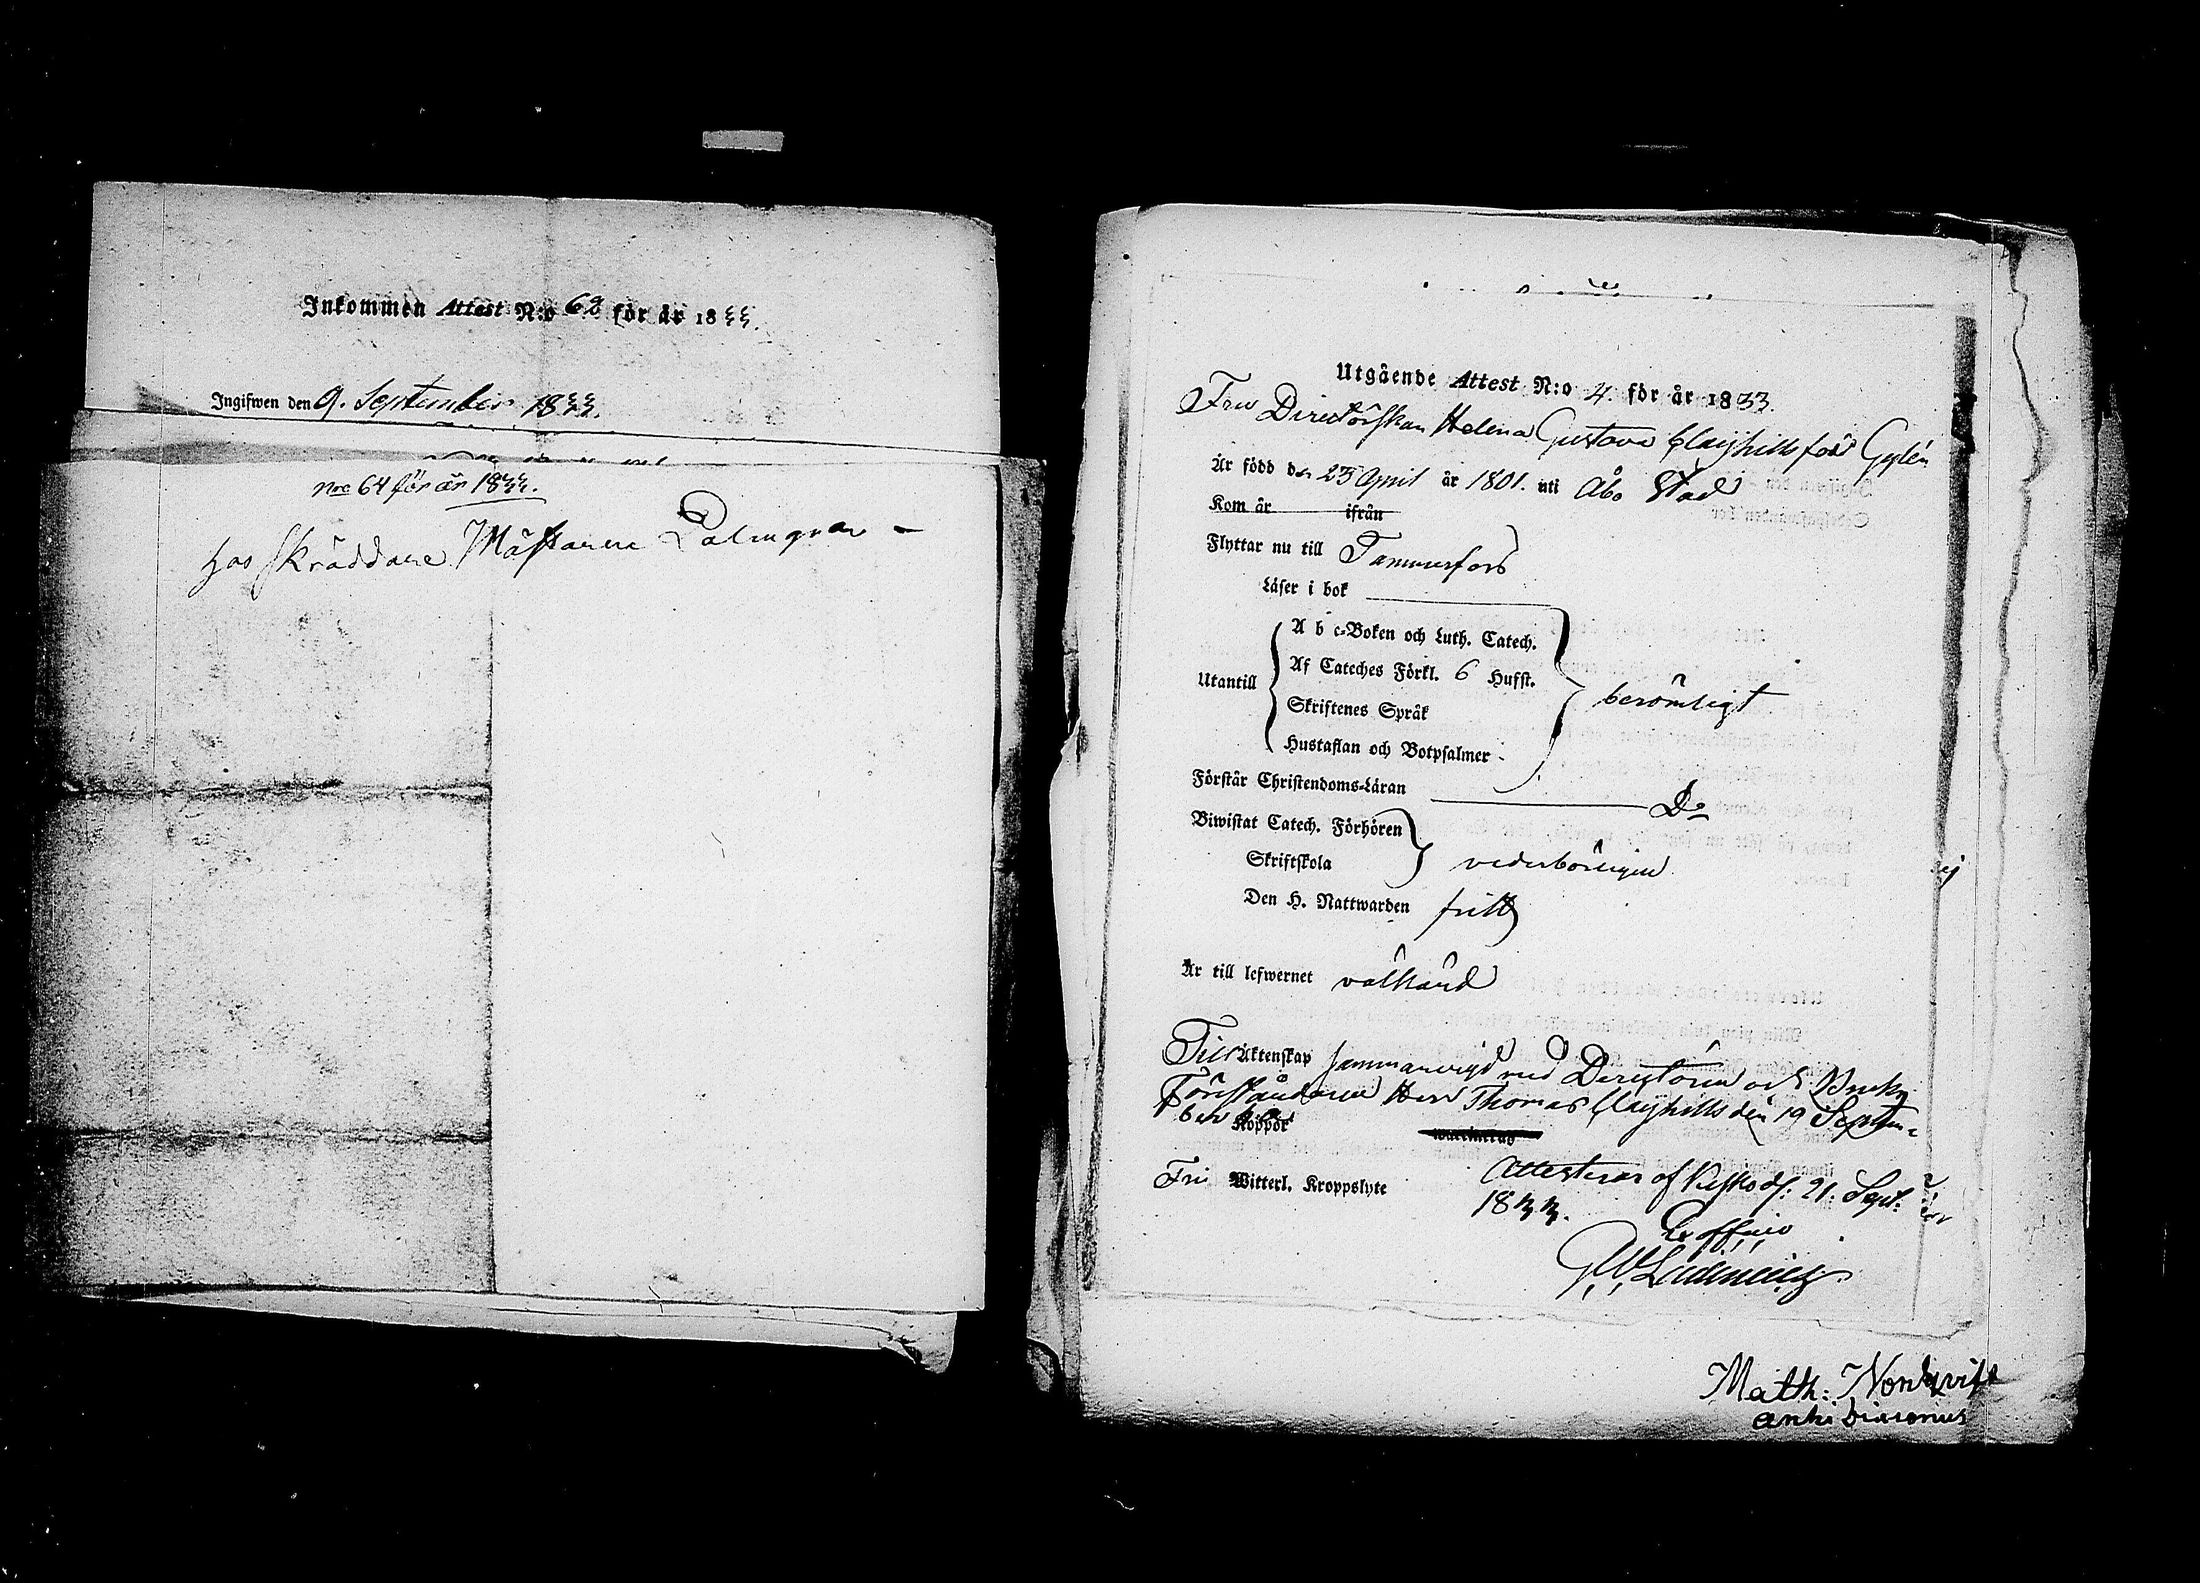 Inkommen Attest N:o 62 för år 1833.
Ingifwen den 9. September 1833.
Nro 64 för år 1833.
hos Skräddare Mästaren Palmgren
Utgående Attest N:o 4 för år 1833.
Fru Directörskan Helena Gustava Clayhills född Gylén
Är född den 23 April år 1801. uti Åbo Stad
Kom år ifrån
Flyttar nu till Tammerfors
Läser i bok
Utantill
A b c-Boken och Luth. Catech.
Af Cateches Förkl. 6 Hufst.
Skriftenes Språk
Hustaflan och Botpsalmer
berömligt
Förstår Christendoms-Läran Do
Biwistat Catech. Förhören
Skriftskola
vederbörligen
Den H. Nattwarden fritt
Är till lefwernet välkänd
Till Äktenskap sammanvigd med Directören och Bruks
Förståndaren Herr Thomas Clayhills den 19 Septem-
ber
Koppor
Fri Witterl. Kroppslyte
Attesteras af Kisko d. 21. Sept.
1833.
Ex officio
Math: Nordqvist